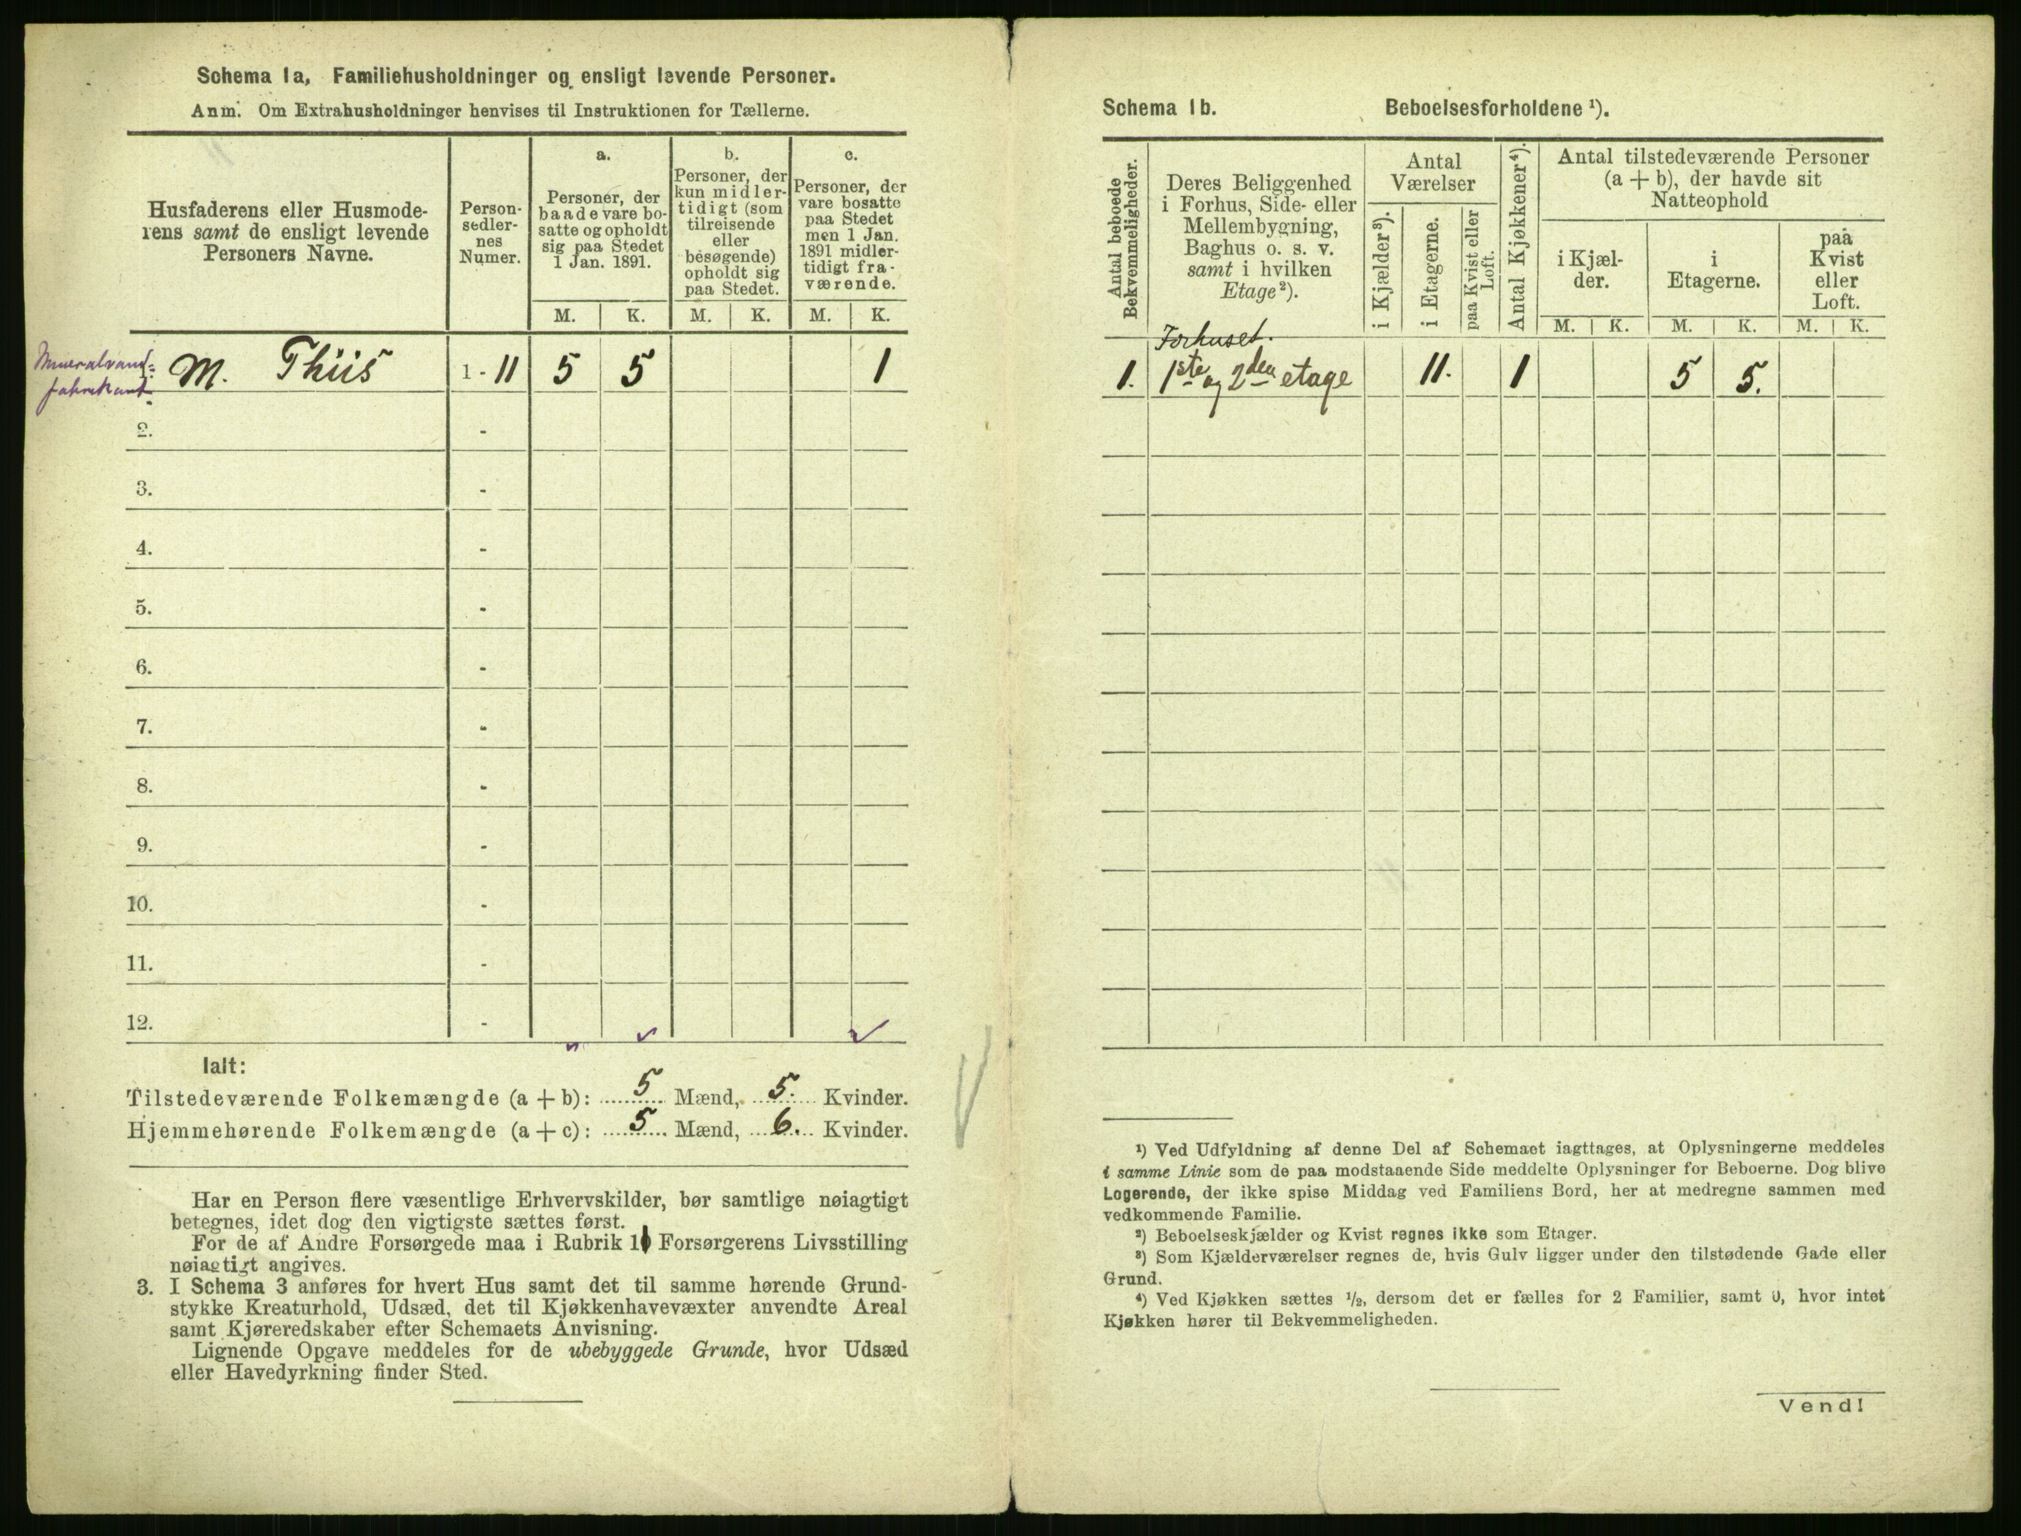 Schema 1a, Familiehusholdninger og ensligt levende Personer.
Anm. Om Extrahusholdninger henvises til Instruktionen for Tællerne.
Husfaderens eller Husmode-
rens samt de ensligt levende
Personers Navne.
Person-
sedler-
nes
Numer.
a.
Personer, der
baade vare bo-
satte og opholdt
sig paa Stedet
1 Jan. 1891.
b.
Personer, der
kun midler-
tidigt (som
tilreisende
eller
besøgende)
opholdt sig
paa Stedet.
c.
Personer, der
vare bosatte
paa Stedet
men 1 Jan.
1891 midler-
tidigt fra-
værende.
M. K. M. K. M. K.
Mineralvand-
fabrikant
1. M. Thiis 1 - 11 5 5 1
2. -
3. -
4. -
5. -
6. -
7. -
8. -
9. -
10. -
11. -
12. -
Ialt:
Tilstedeværende Folkemængde (a + b): 5 Mænd, 5. Kvinder.
Hjemmehørende Folkemængde (a + c): 5 Mænd, 6. Kvinder.
Har en Person flere væsentlige Erhvervskilder, bør samtlige nøiagtigt
betegnes, idet dog den vigtigste sættes først.
For de af Andre Forsørgede maa i Rubrik 10 Forsørgerens Livsstilling
nøiagtigt angives.
3. I Schema 3 anføres for hvert Hus samt det til samme hørende Grund-
stykke Kreaturhold, Udsæd, det til Kjøkkenhavevæxter anvendte Areal
samt Kjøreredskaber efter Schemaets Anvisning.
Lignende Opgave meddeles for de ubebyggede Grunde, hvor Udsæd
eller Havedyrkning finder Sted.
Schema 1b. Beboelsesforholdene ¹).
Antal beboede
Bekvemmeligheder.
Deres Beliggenhed
i Forhus, Side- eller
Mellembygning,
Baghus o. s. v.
samt i hvilken
Etage²).
Antal
Værelser
i Kjælder³).
i Etagerne.
paa Kvist eller
Loft.
Antal Kjøkkener⁴).
Antal tilstedeværende Personer
(a + b), der havde sit
Natteophold
i Kjæl-
der.
i
Etagerne.
paa
Kvist
eller
Loft.
M. K. M. K. M. K.
Forhuset.
1. 1ste og 2den etage 11. 1 5 5.
¹) Ved Udfyldning af denne Del af Schemaet iagttages, at Oplysningerne meddeles
i samme Linie som de paa modstaaende Side meddelte Oplysninger for Beboerne. Dog blive
Logerende, der ikke spise Middag ved Familiens Bord, her at medregne sammen med
vedkommende Familie.
²) Beboelseskjælder og Kvist regnes ikke som Etager.
³) Som Kjælderværelser regnes de, hvis Gulv ligger under den tilstødende Gade eller
Grund.
⁴) Ved Kjøkken sættes ½, dersom det er fælles for 2 Familier, samt 0, hvor intet
Kjøkken hører til Bekvemmeligheden.
Vend!